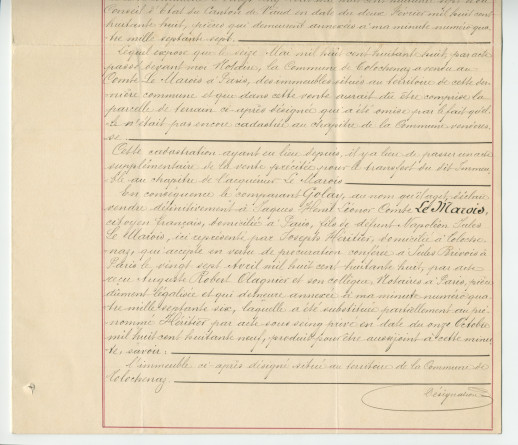 Conseil d'Etat du Canton de Vaud en date du deux Février mil huit cent
huitante huit, pièces qui demeurent annexées à ma minute numéro qua-
tre mille septante sept.
Lequel expose que le seize Mai mil huit cent huitante huit, par acte
passé devant moi Notaire, la Commune de Tolochenaz, a vendu au
Comte Le Marois à Paris, des immeubles situés au territoire de cette der-
nière commune et que dans cette vente aurait dû être comprise la
parcelle de terrain ci-après désignée qui a été omise par le fait qu'el-
le n'était pas encore cadastrée au chapitre de la Commune venderes-
se.
Cette cadastration ayant eu lieu depuis, il y a lieu de passer un acte
supplémentaire de la vente précitée pour le transfert du dit Immeu-
ble au chapitre de l'acquéreur Le Marois.
En conséquence le comparant Golay, au nom qu'il agit, déclare
vendre définitivement à Jaques Henri Léonor Comte Le Marois,
citoyen français, domicilié à Paris, fils de défunt Napoléon Jules
Le Marois, ici représenté par Joseph Héritier, domicilié à Toloche-
naz, qui accepte en vertu de procuration conférée à Jules Prévois à
Paris le vingt sept Avril mil huit cent huitante huit, par acte
reçu Auguste Robert Olagnier et son collègue, Notaires à Paris, pièce
dûment légalisée et qui demeure annexée à ma minute numéro qua-
tre mille septante six, laquelle a été substituée partiellement au pré-
nommé Héritier par acte sous seing privé en date du onze Octobre
mil huit cent huitante neuf, produit pour être aussi joint à cette minu-
te, savoir:
L'immeuble ci-après désigné situé au territoire de la Commune de
Tolochenaz.
Désignation